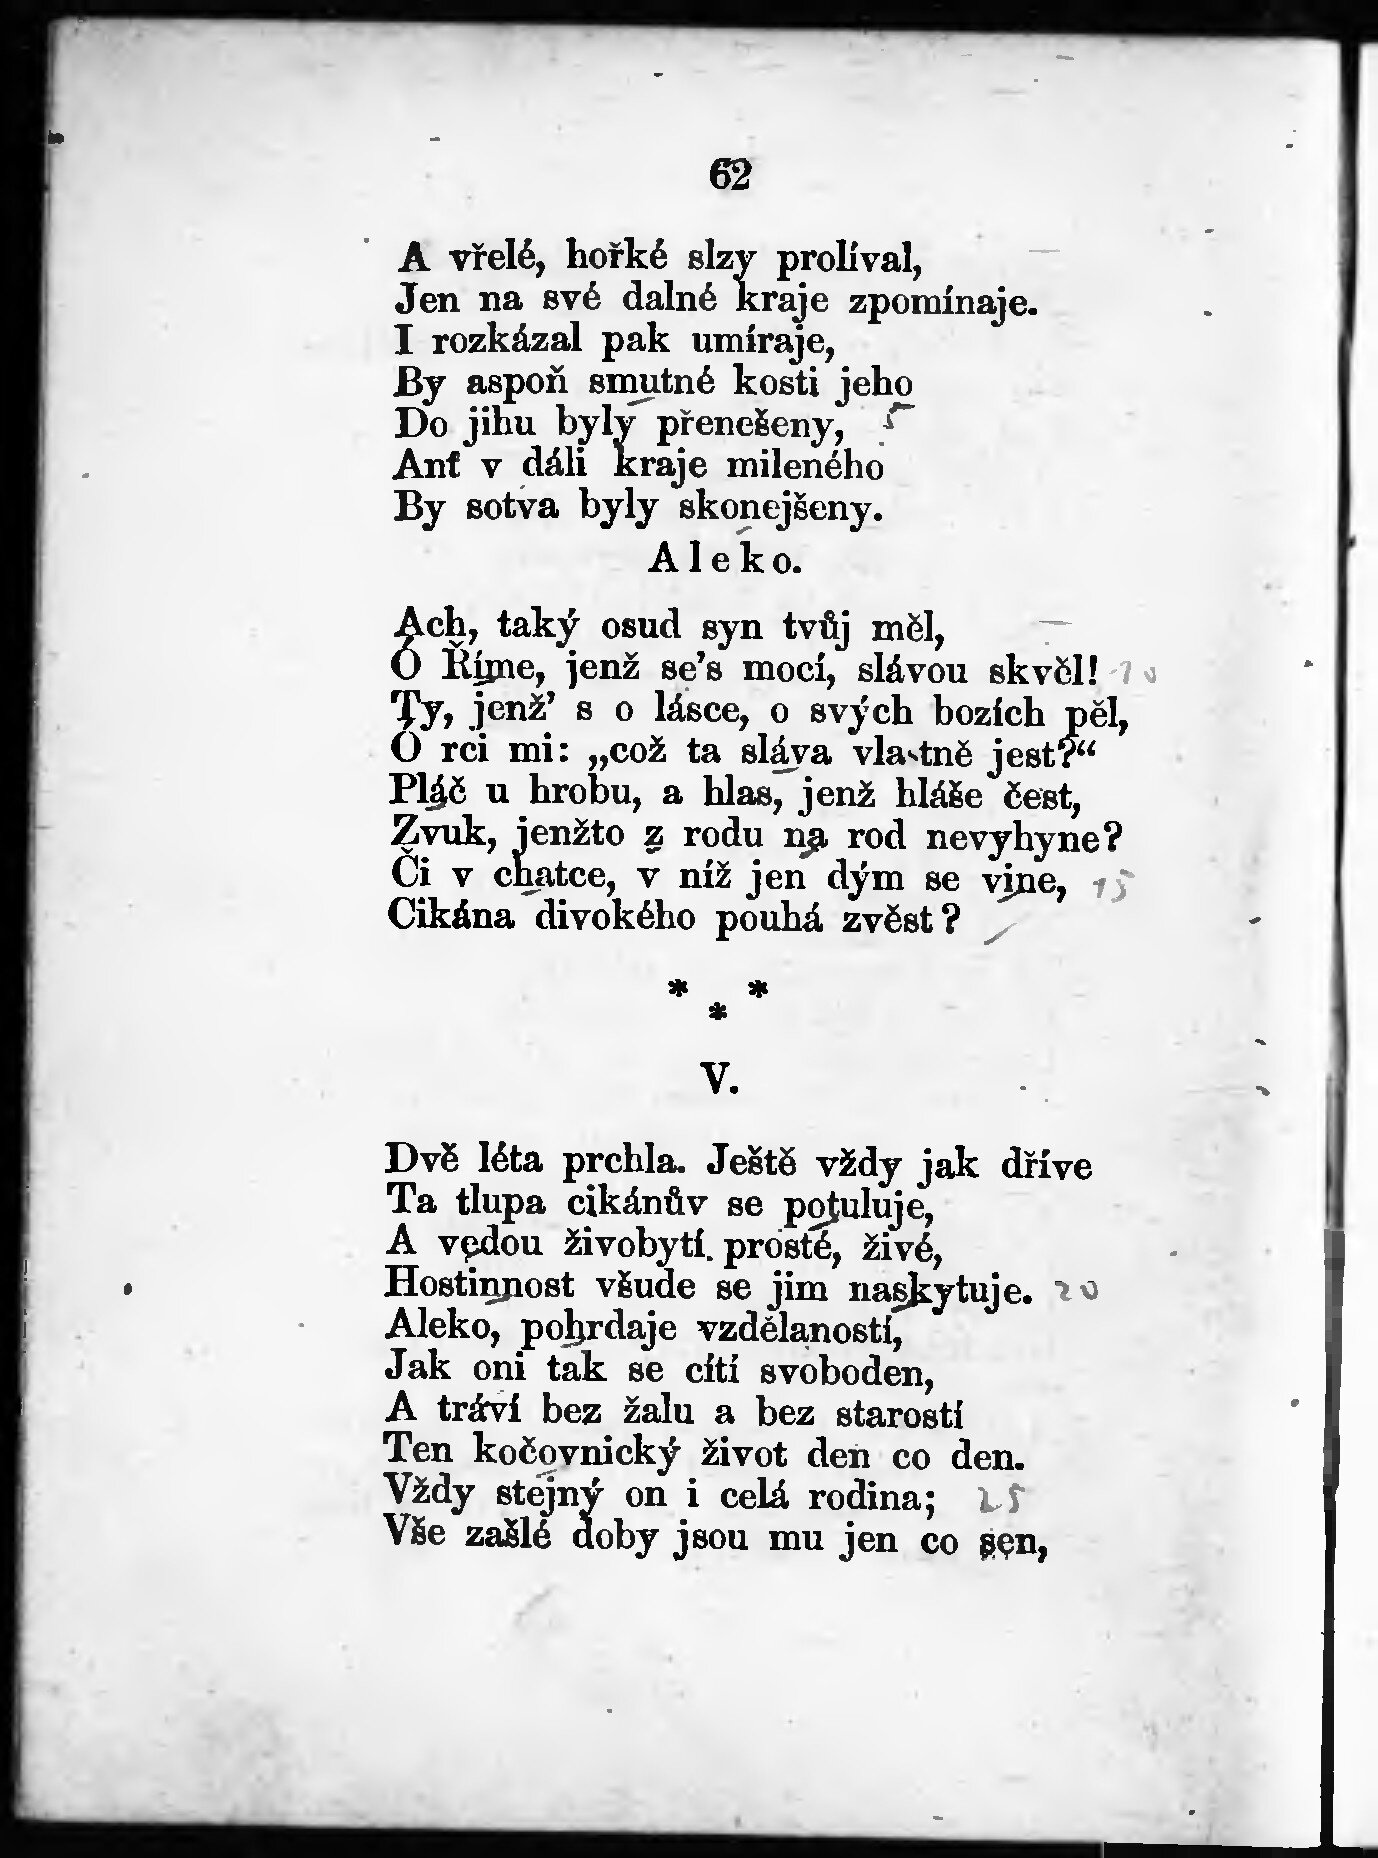 62
A vřelé, hořké slzy prolíval,
Jen na své dalné kraje zpomínaje.
I rozkázal pak umíraje,
By aspoň smutné kosti jeho
Do jihu byly přenešeny, 5
Anť v dáli kraje mileného
By sotva byly skonejšeny.
Aleko.
Ach, taký osud syn tvůj měl,
Ó Říme, jenž se's mocí, slávou skvěl! 10
Ty, jenž' s o lásce, o svých bozích pěl,
Ó rci mi: „což ta sláva vlastně jest?“
Pláč u hrobu, a hlas, jenž hláše čest,
Zvuk, jenžto z rodu na rod nevyhyne?
Či v chatce, v níž jen dým se vine, 15
Cikána divokého pouhá zvěst?
* * *
V.
Dvě léta prchla. Ještě vždy jak dříve
Ta tlupa cikánův se potuluje,
A vedou živobytí prosté, živé,
Hostinnost všude se jim naskytuje. 20
Aleko, pohrdaje vzdělaností,
Jak oni tak se cítí svoboden,
A tráví bez žalu a bez starostí
Ten kočovnický život den co den.
Vždy stejný on i celá rodina; 25
Vše zašlé doby jsou mu jen co sen,